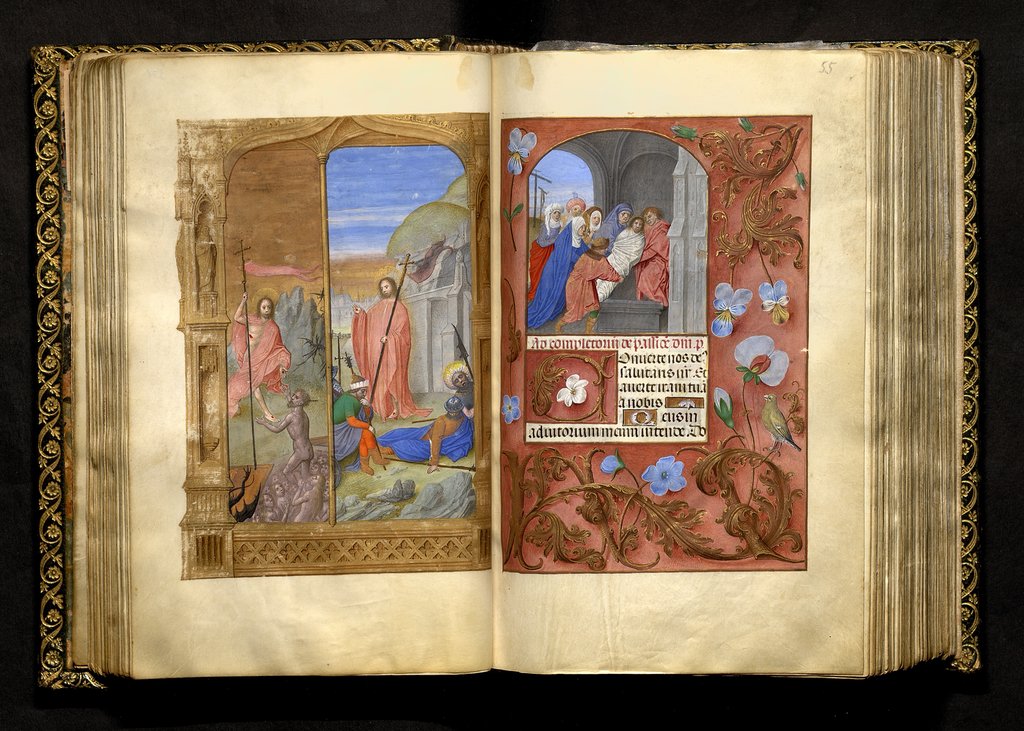 55
Ad completoriū de passiōe dn̄i. p̄
Onuerte nos de9
salutaris nr̄. Et
auerte iram tuā
a nobis
eus in
adiutorium meum intende. Do